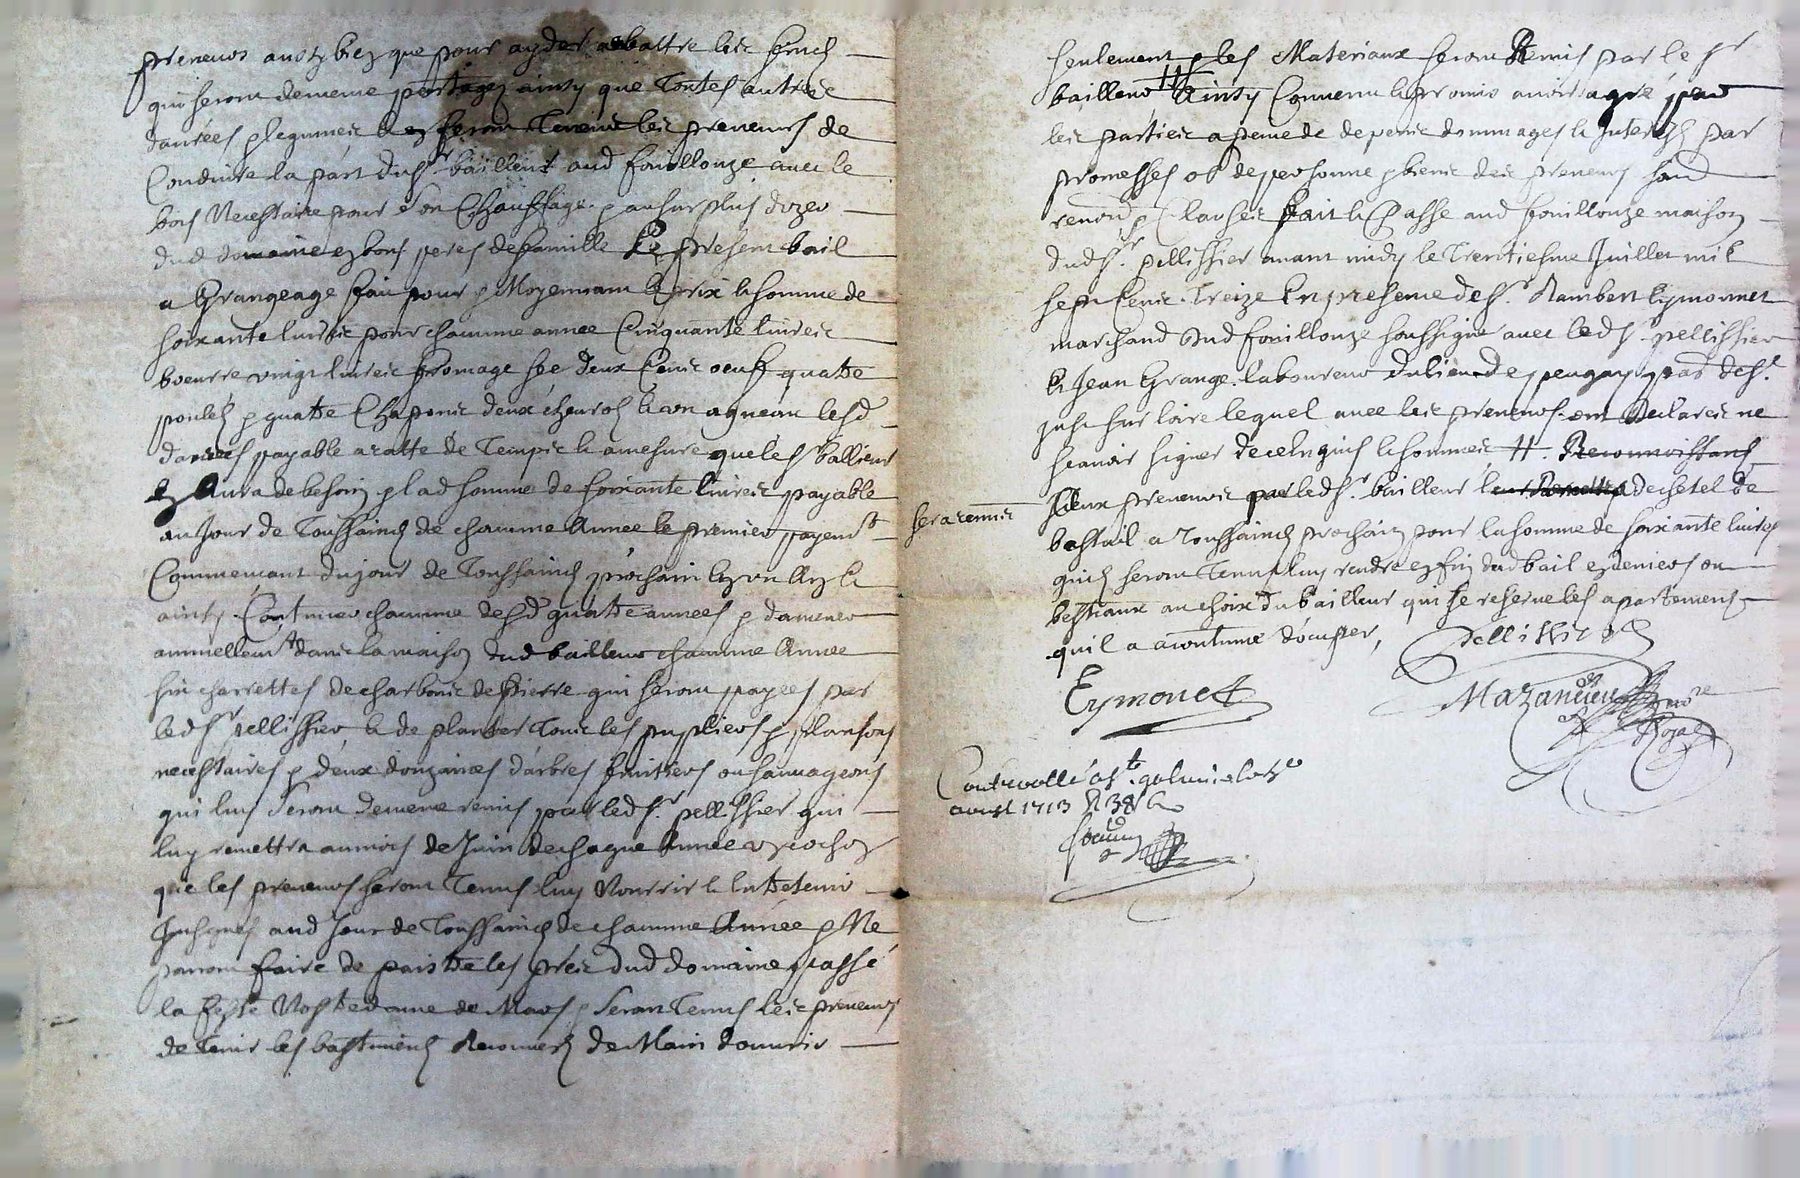 preneurs aussy bien que pour ayder a abattre les fruicts
qui seront de meme partagez ainsy que toutes autres
danrées & legumes & seront tenus les preneurs de
Conduire la part dud sr bailleur aud fouillouze avec le
bois necessaire pour son Chauffage & au surplus d'uzer
dud domaine en bons peres de famille le present bail
a Grangeage fait pour & moyennant le prix & somme de
soixante livres pour chacunne année Cinquante livres
boeurre vingt livres fromage sec deux Cents oeufs quattre
poulets & quattre Chapons deux chevrots & un agneau lesd
danrées payable a ratte de temps & a mesure que led sr bailleur
en aura de besoin & lad somme de soixante livres payable
au Jour de Toussaincts de chacunne Année le premier payemt
Commencant du jour de Toussaincts prochain en un An &
ainsy Continuer chacunne desd quattre années & d'amener
annuellemt dans la maison dud bailleur chacunne Année
six charrettes de charbons de Pierre qui seront payées par
led sr pellissier & de planter tous les pupliers & plansons
necessaires & deux douzaines d'arbres fruitiers ou sauvageons
qui luy seront de meme remis par led sr pellissier qui
luy remettra au mois de Juin de chaque Année un cochon
que les preneurs seront tenus luy Nourrir & Entretenir
Jusques aud Jour de Toussaincts de chacunne Année & Ne
pourront faire de paistre les prés dud domaine passé
la feste Nostre dame de Mars & seront tenus les preneurs
de tenir les bastiments de Main d'ouvrier
seulement & les Materiaux seront Remis par le sr
bailleur Ainsy Convenu & promis avoir agré par
les parties a peine de depens dommages & Interests par
promesses ob de personne & biens des preneurs sand
renond & Clauses fait & Passé aud fouillouze maison
dud sr pellissier avant midy le trentiesme Juillet mil
sept Cents treize En presence de sr Rambert Eymonnet
marchand dud fouillouze soussigné avec led sr pellissier
& Jean Grange laboureur du lieu de parr de st
Just sur loire lequel avec les preneurs ont declarés ne
scavoir signer de ce Enquis & sommés Reconnoissants
sera remis
Sieux preneurs par led sr bailleur de chetel de
bestail a toussaincts prochain pour la somme de soixante livres
quils seront tenus luy rendre en fin dud bail en deniers ou
bestiaux au choix du bailleur qui se reserve les apartements
quil a acoutumé d'ocuper,
Pellissier
Eymonet
Mazancieu
Nore Royal
Controllé a st galmier le
aoust 1713 R 38 s